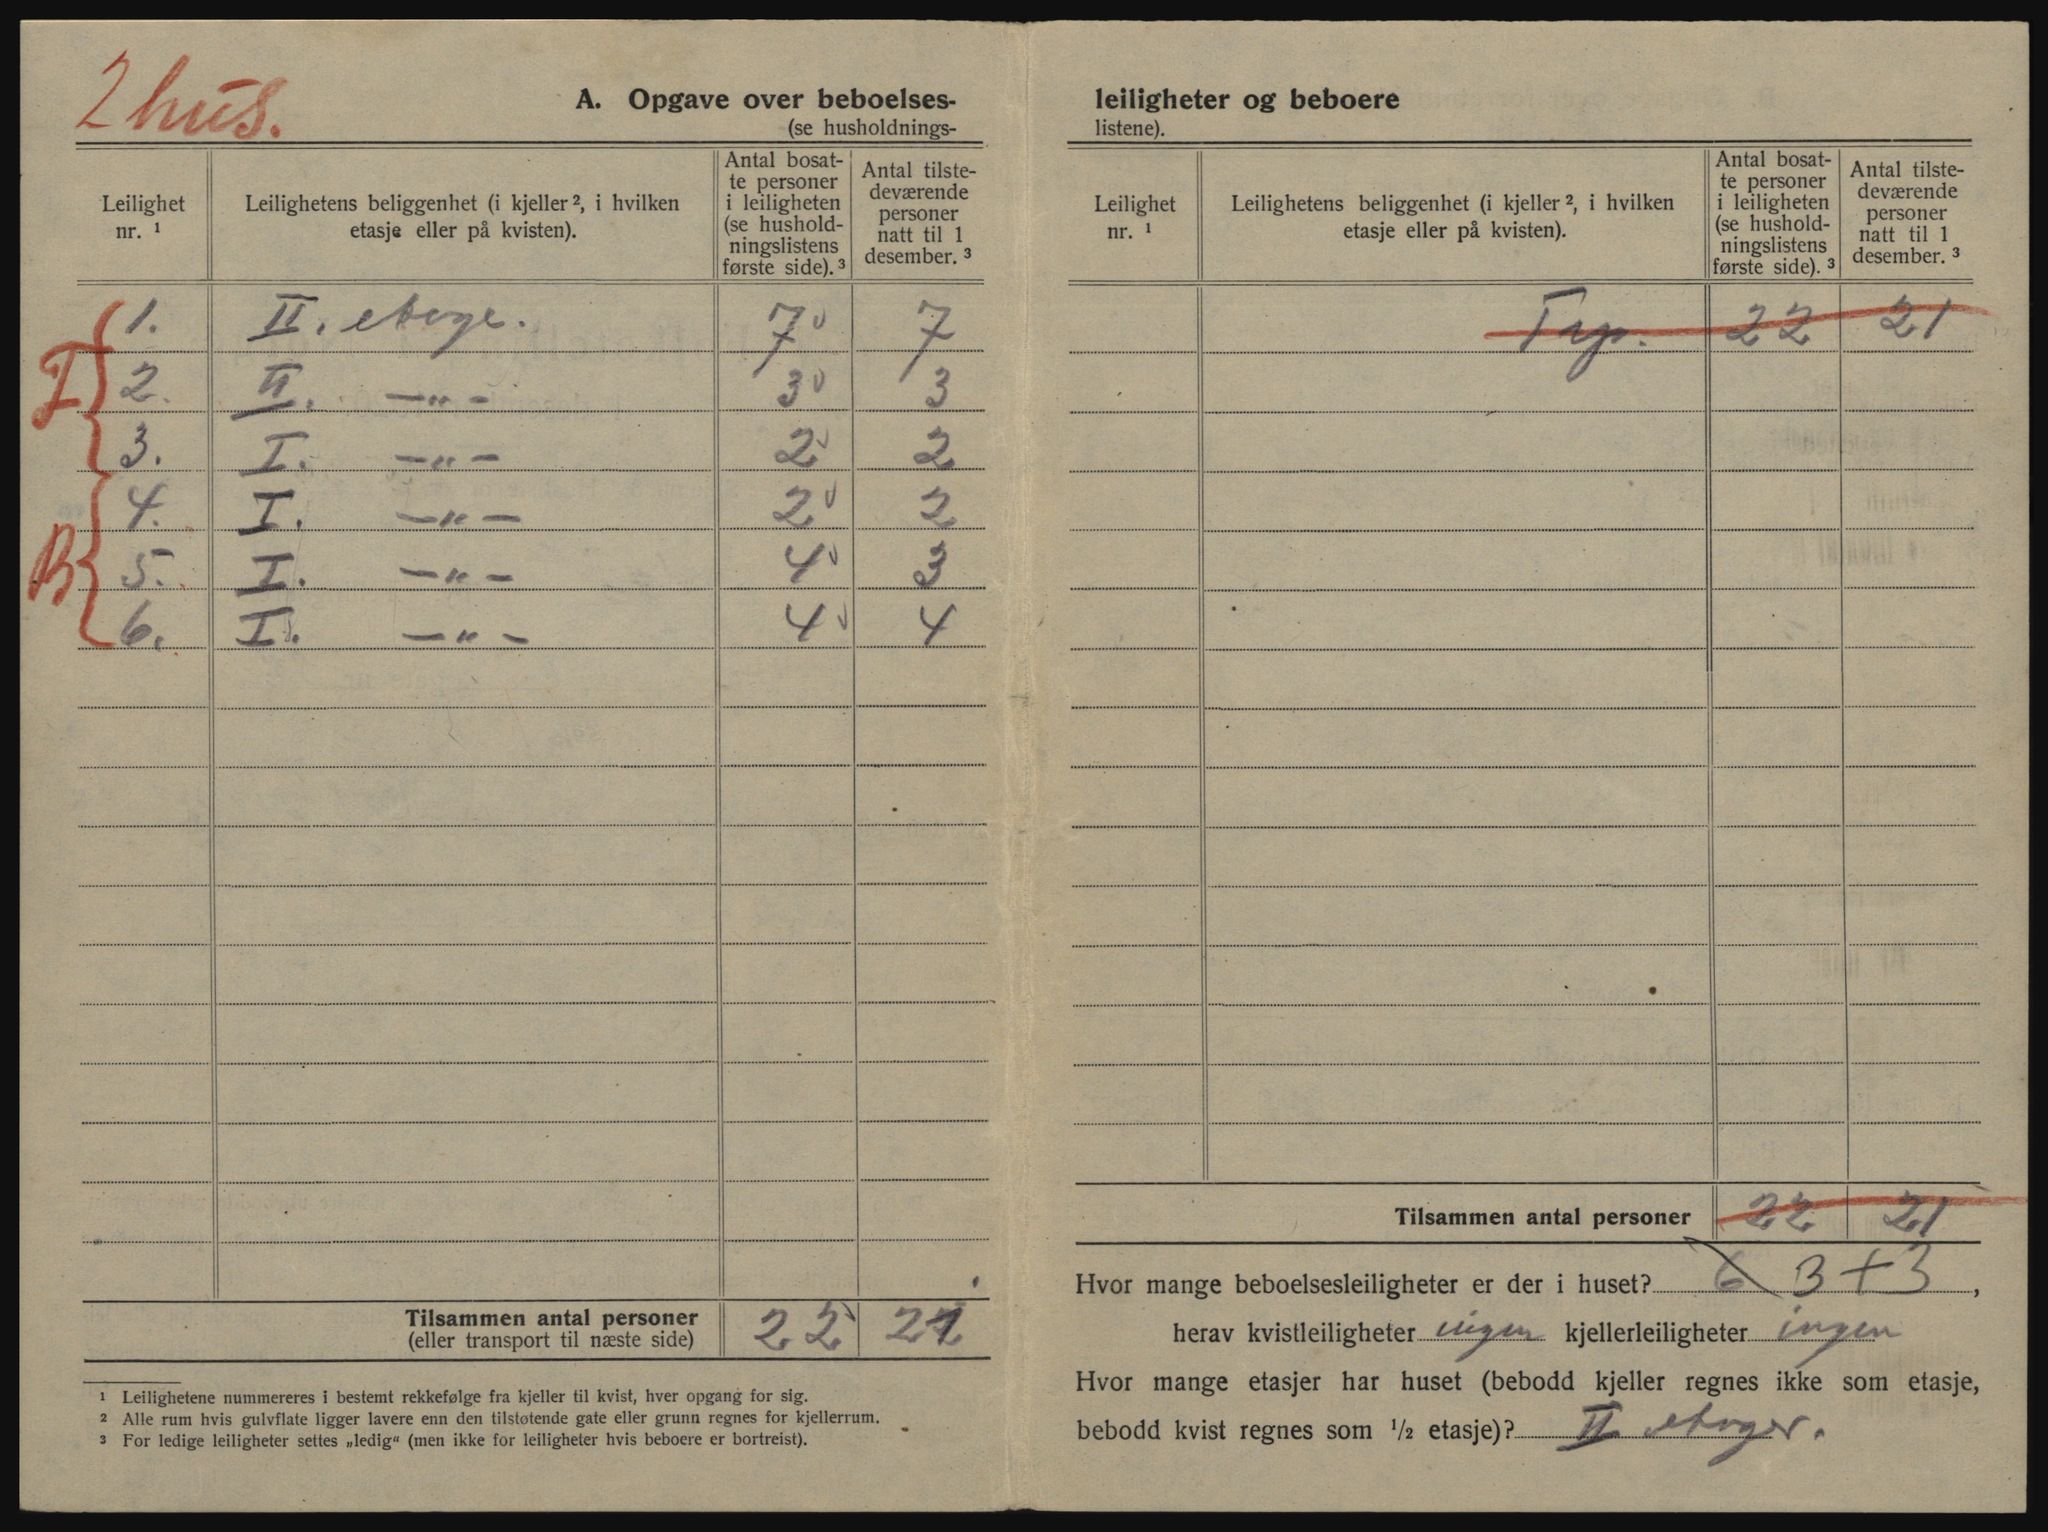 2 hus.
A. Opgave over beboelses-
(se husholdnings-
Leilighet nr. ¹
Leilighetens beliggenhet (i kjeller ², i hvilken etasje eller på kvisten).
Antal bosatte personer i leiligheten (se husholdningslistens første side). ³
Antal tilstedeværende personer natt til 1 desember. ³
1. II. etage. 7 7
2. II. —„— 3 3
3. I. —„— 2 2
4. I. —„— 2 2
5. I. —„— 4 3
6. I. —„— 4 4
I
B
Tilsammen antal personer 22 21
(eller transport til næste side)
¹ Leilighetene nummereres i bestemt rekkefølge fra kjeller til kvist, hver opgang for sig.
² Alle rum hvis gulvflate ligger lavere enn den tilstøtende gate eller grunn regnes for kjellerrum.
³ For ledige leiligheter settes „ledig“ (men ikke for leiligheter hvis beboere er bortreist).
leiligheter og beboere
listene).
Leilighet nr. ¹
Leilighetens beliggenhet (i kjeller ², i hvilken etasje eller på kvisten).
Antal bosatte personer i leiligheten (se husholdningslistens første side). ³
Antal tilstedeværende personer natt til 1 desember. ³
22 21
Tilsammen antal personer 22 21
Hvor mange beboelsesleiligheter er der i huset? 6 3+3,
herav kvistleiligheter ingen kjellerleiligheter ingen
Hvor mange etasjer har huset (bebodd kjeller regnes ikke som etasje,
bebodd kvist regnes som ½ etasje)? II etager.